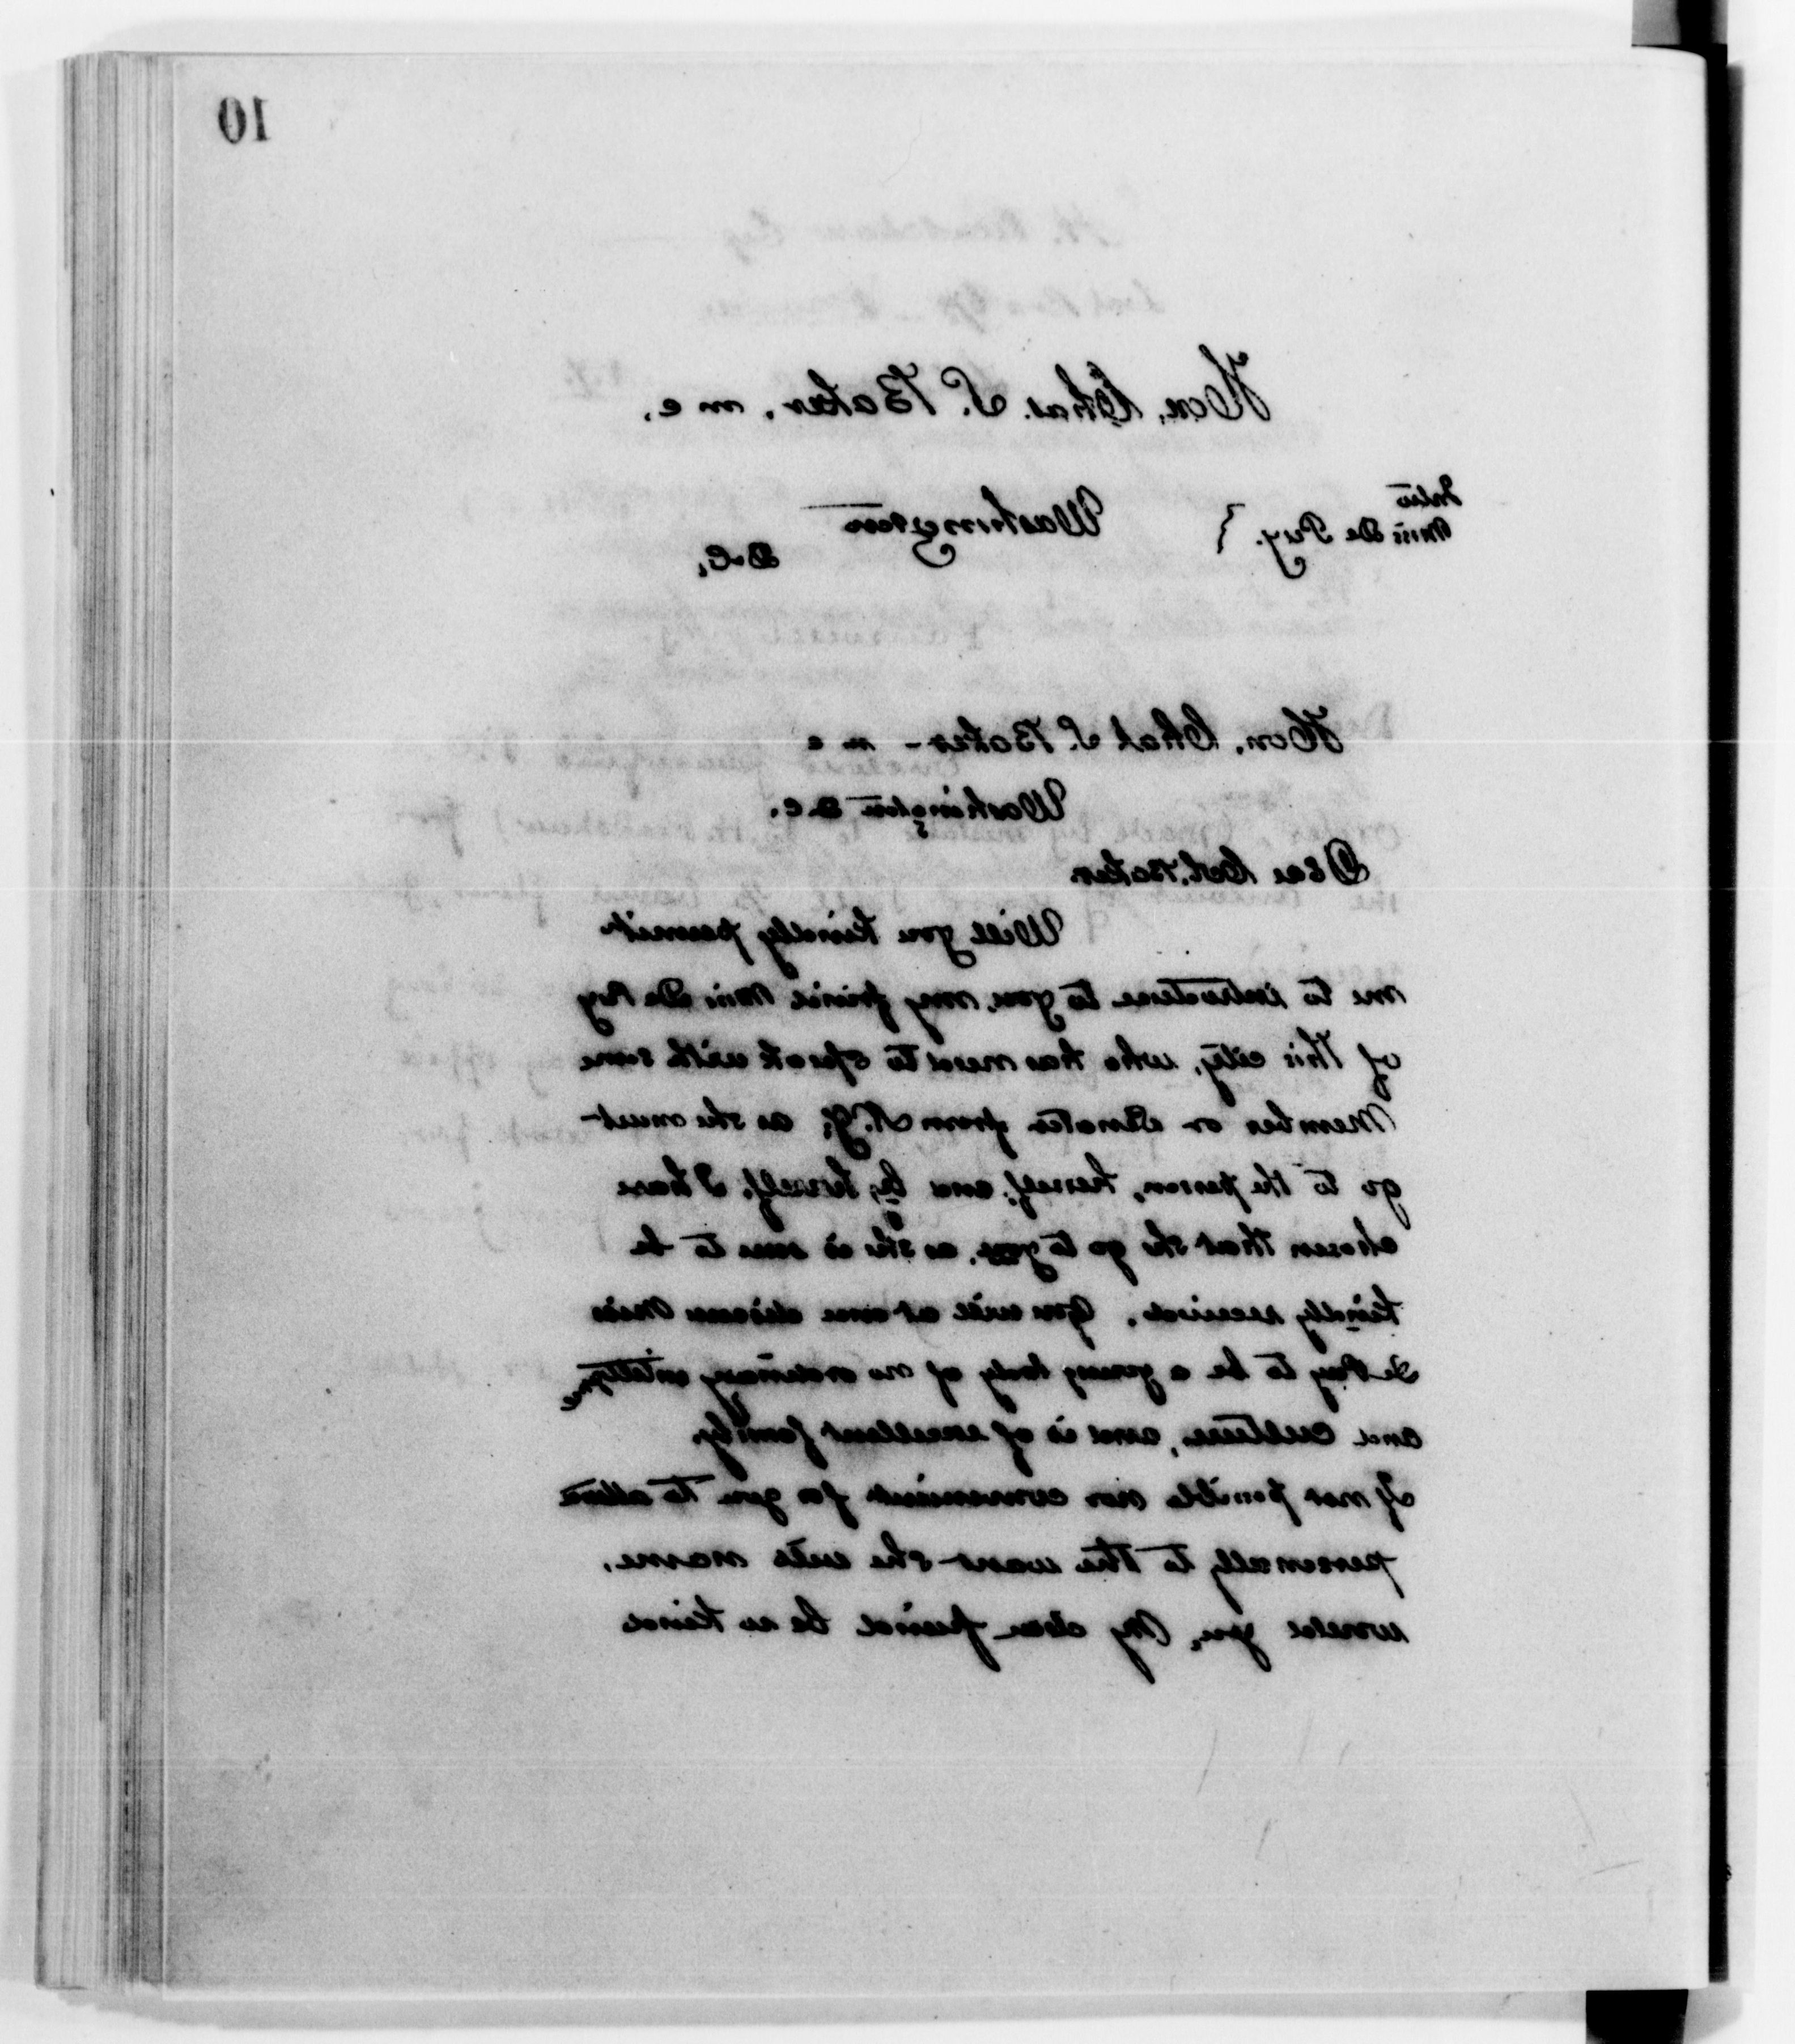 10
Hon. Chas. S. Baker, m c.
Intro
Miss De Puy. } Washington
D.C.
Hon. Chas S. Baker - m c
Washington D.C.
Dear Col. Baker
Will you kindly permit
me to introduce to you, my friend Miss De Puy
of this city, who has need to speak with some
Member or Senator from N.Y. as she must
go to the person, herself, and by herself, I have
chosen that she go to you, as she is sure to be
kindly received. You will at once discern Miss
De Puy to be a young lady of no ordinary intelligence
and culture, and is of excellent family.
If not possible nor convenient for you to attend
personally to the want she will name,
would you, My dear friend be so kind